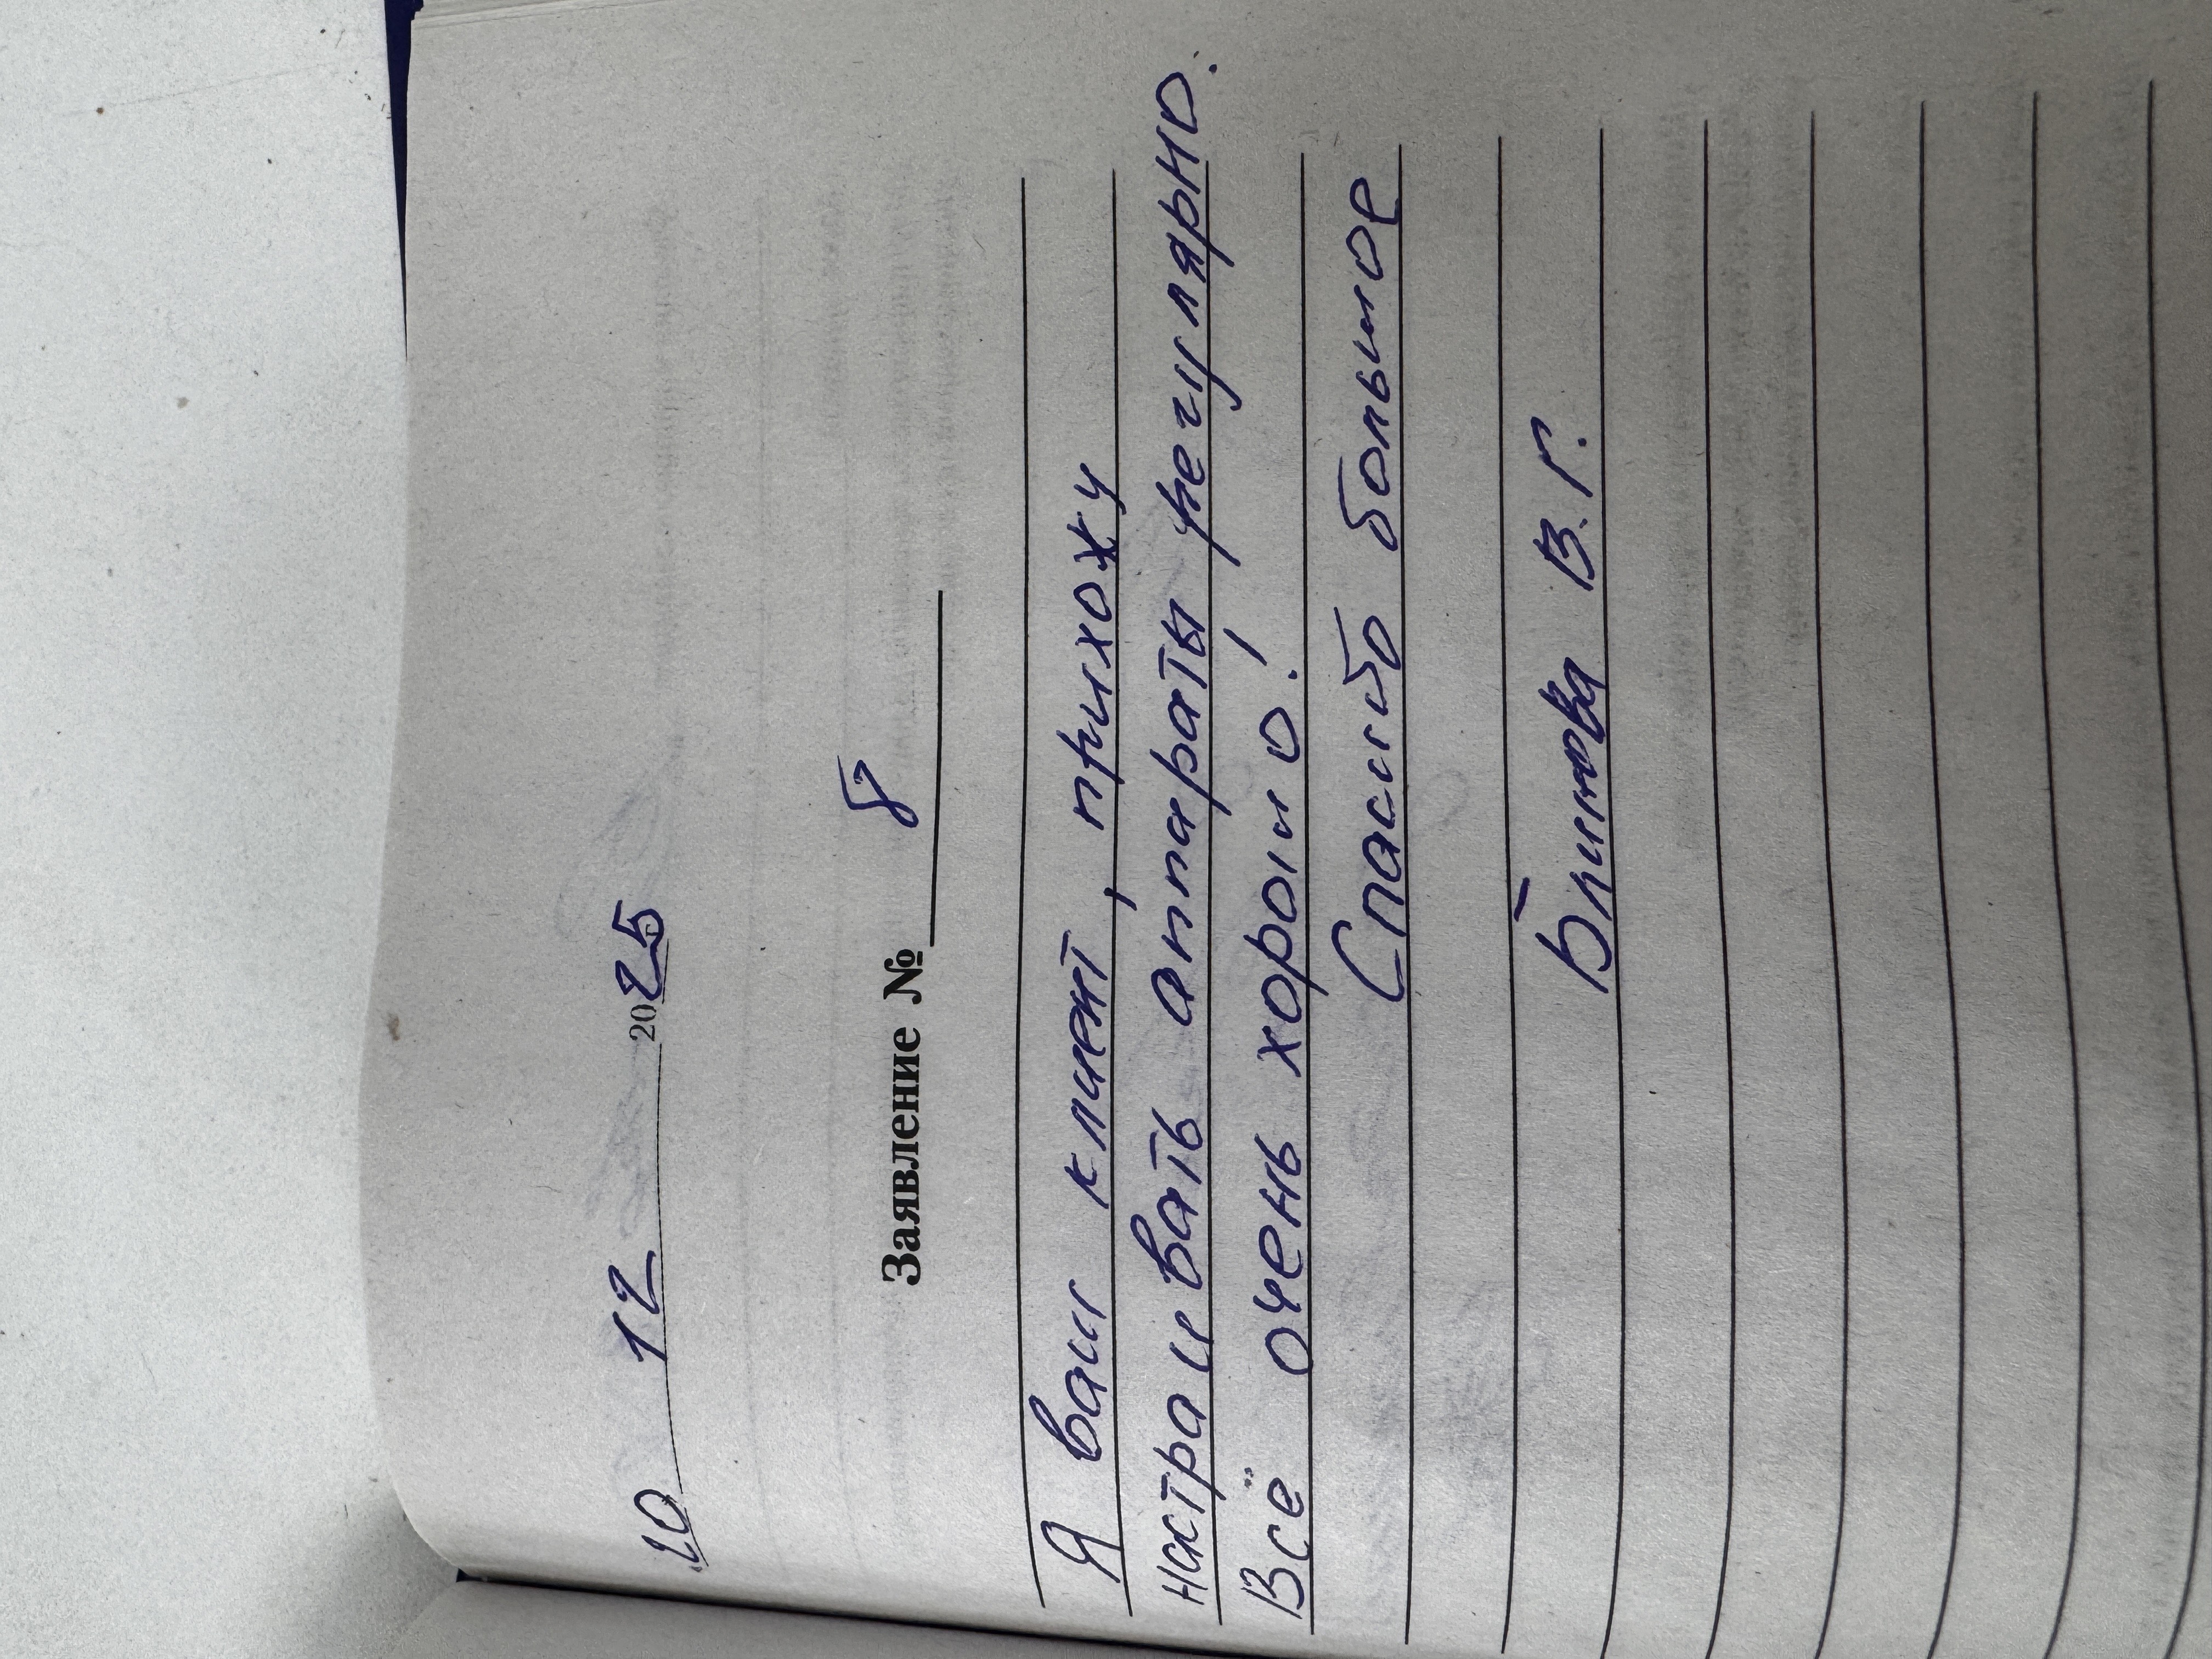 10 12 2025
Заявление № 8
Я ваш клиент, прихожу
настраивать аппараты регулярно.
Всё очень хорошо!
Спасибо большое
Блинова В.Г.